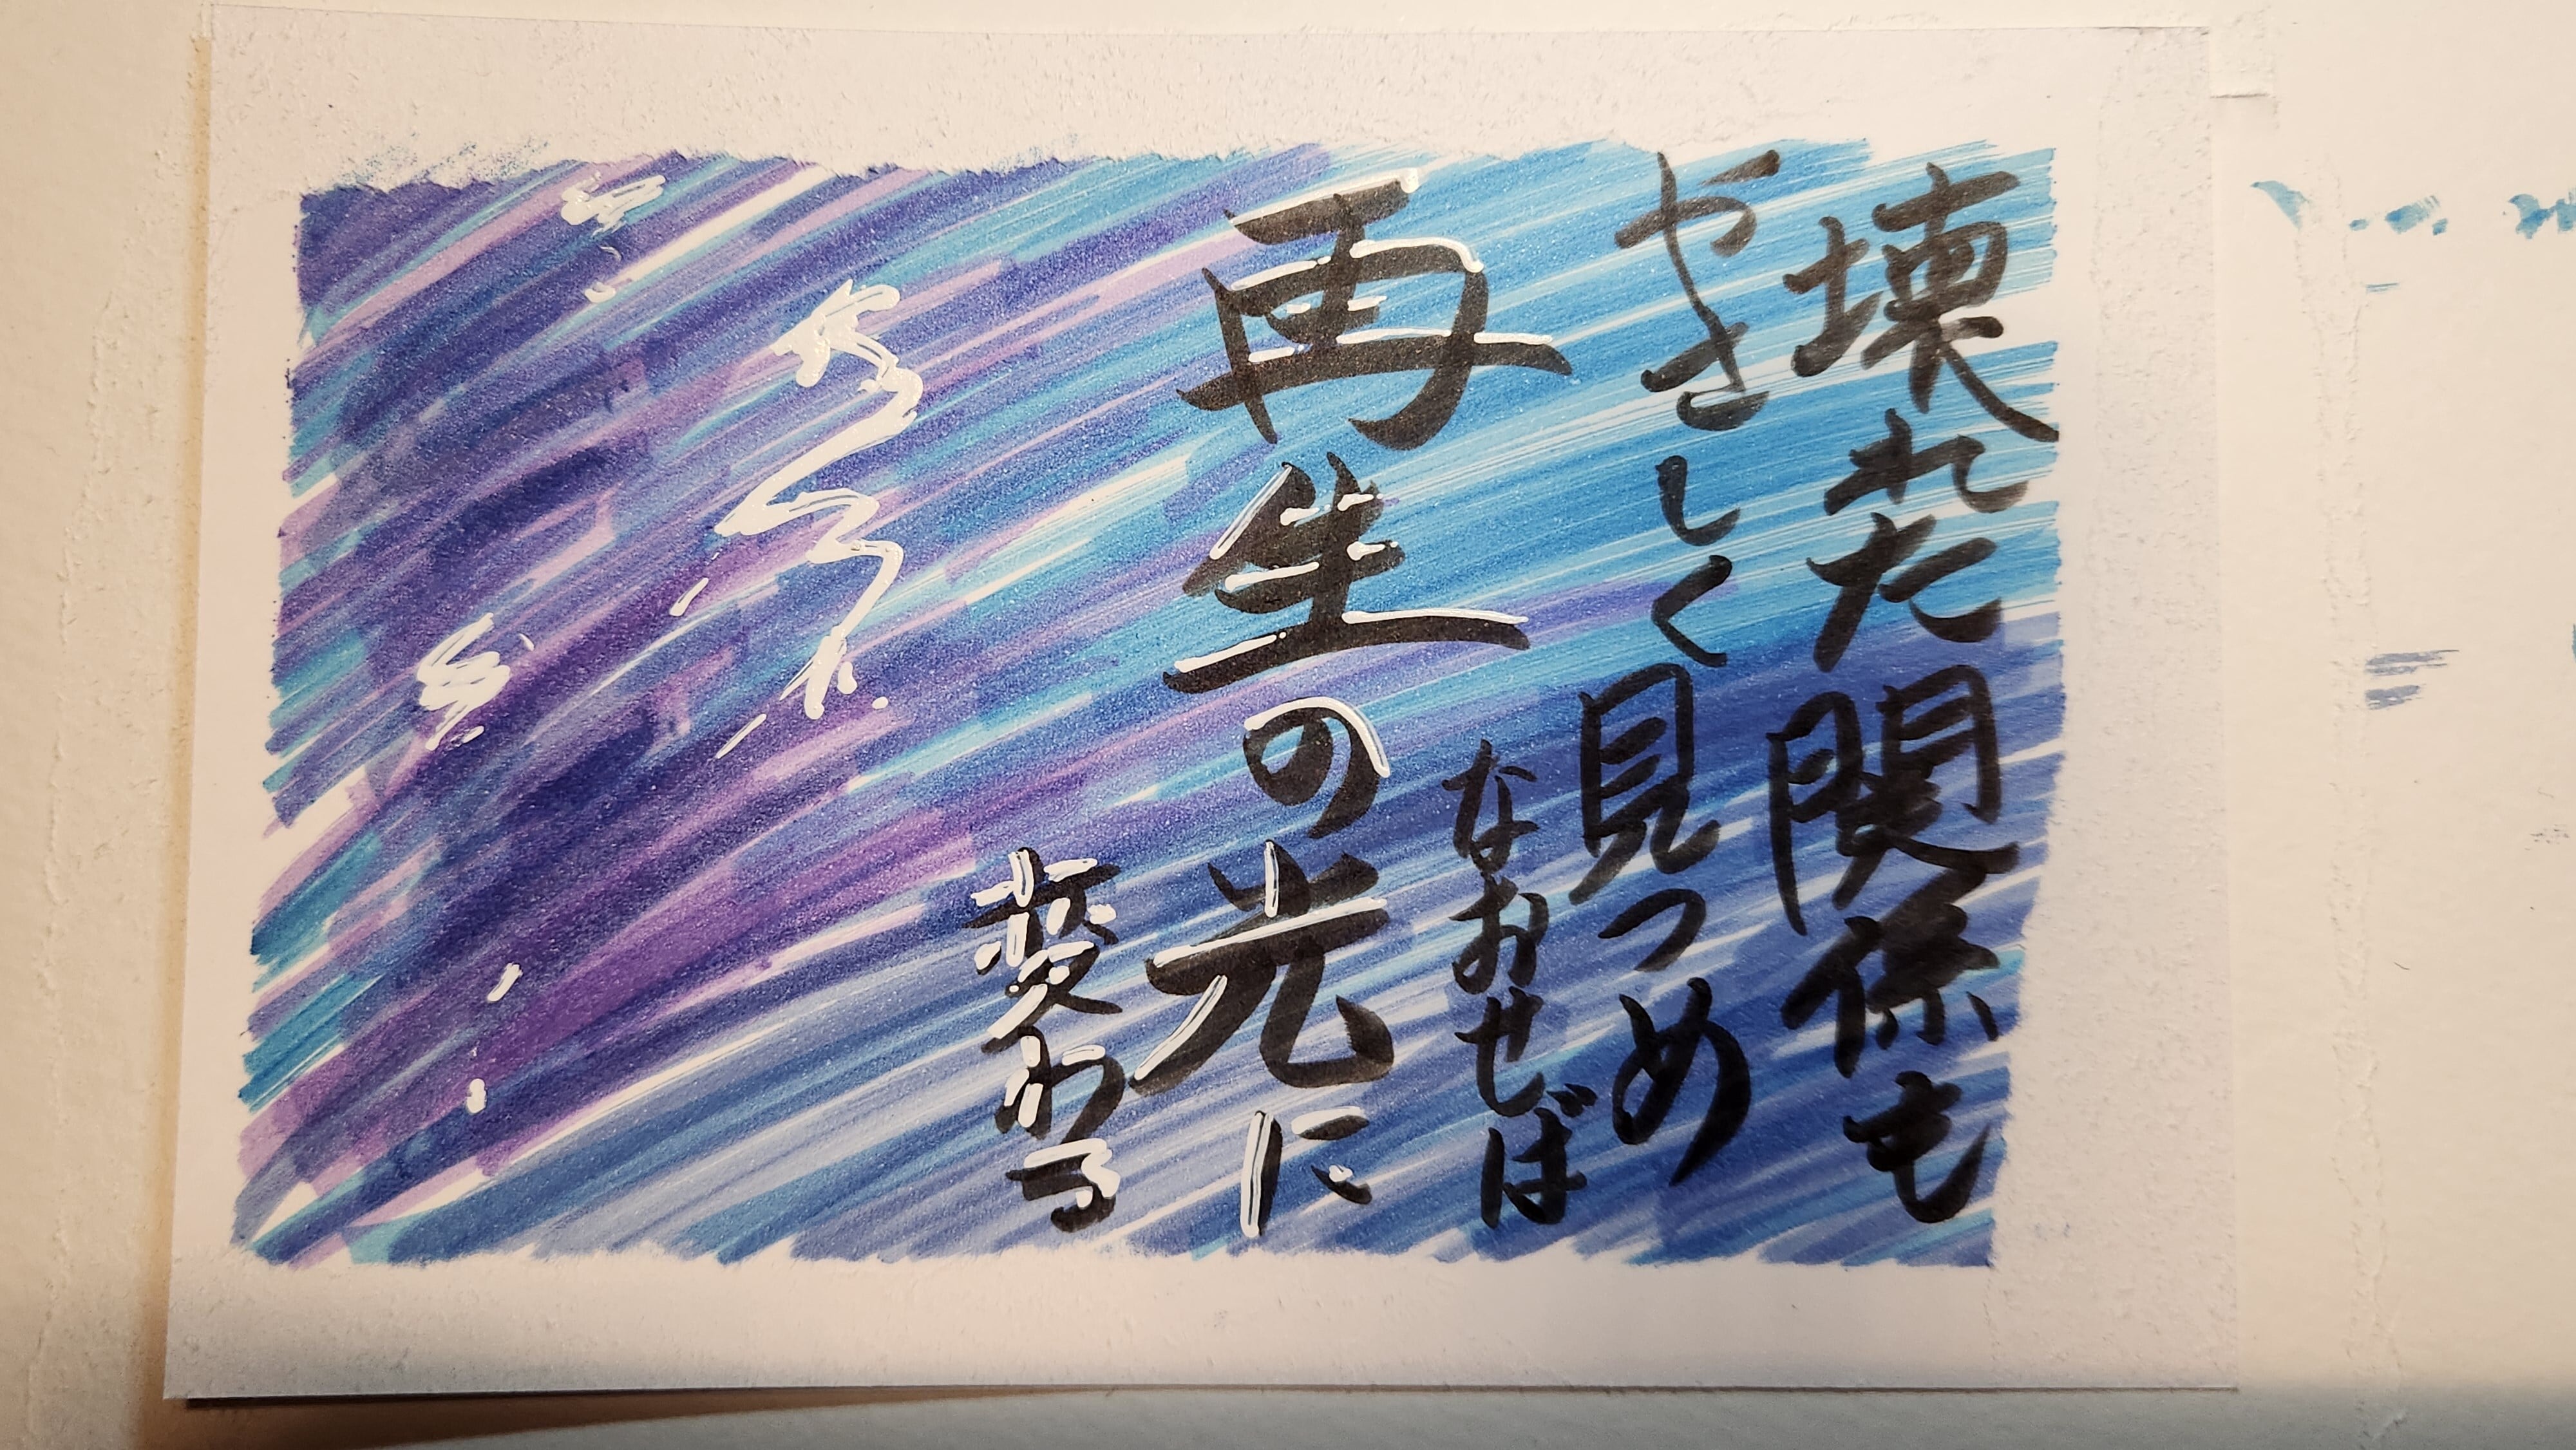 壊れた関係も
やさしく見つめ
なおせば
再生の光に
変わる